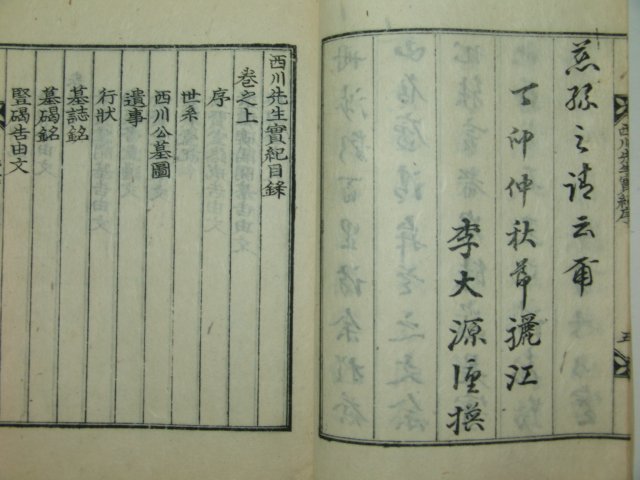 慈孫之請云爾
丁卯仲秋節驪江
李大源謹撰
西川先生實紀序
五
西川先生實紀目錄
卷之上
序
世系
西川公墓圖
遺事
行狀
墓誌銘
墓碣銘
豎碣告由文